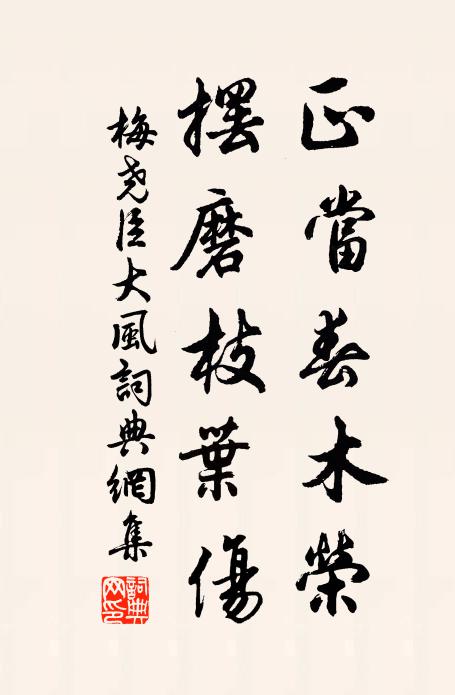 正當春木榮
擺磨枝葉傷
梅堯臣大風詞典網集
詞典網印